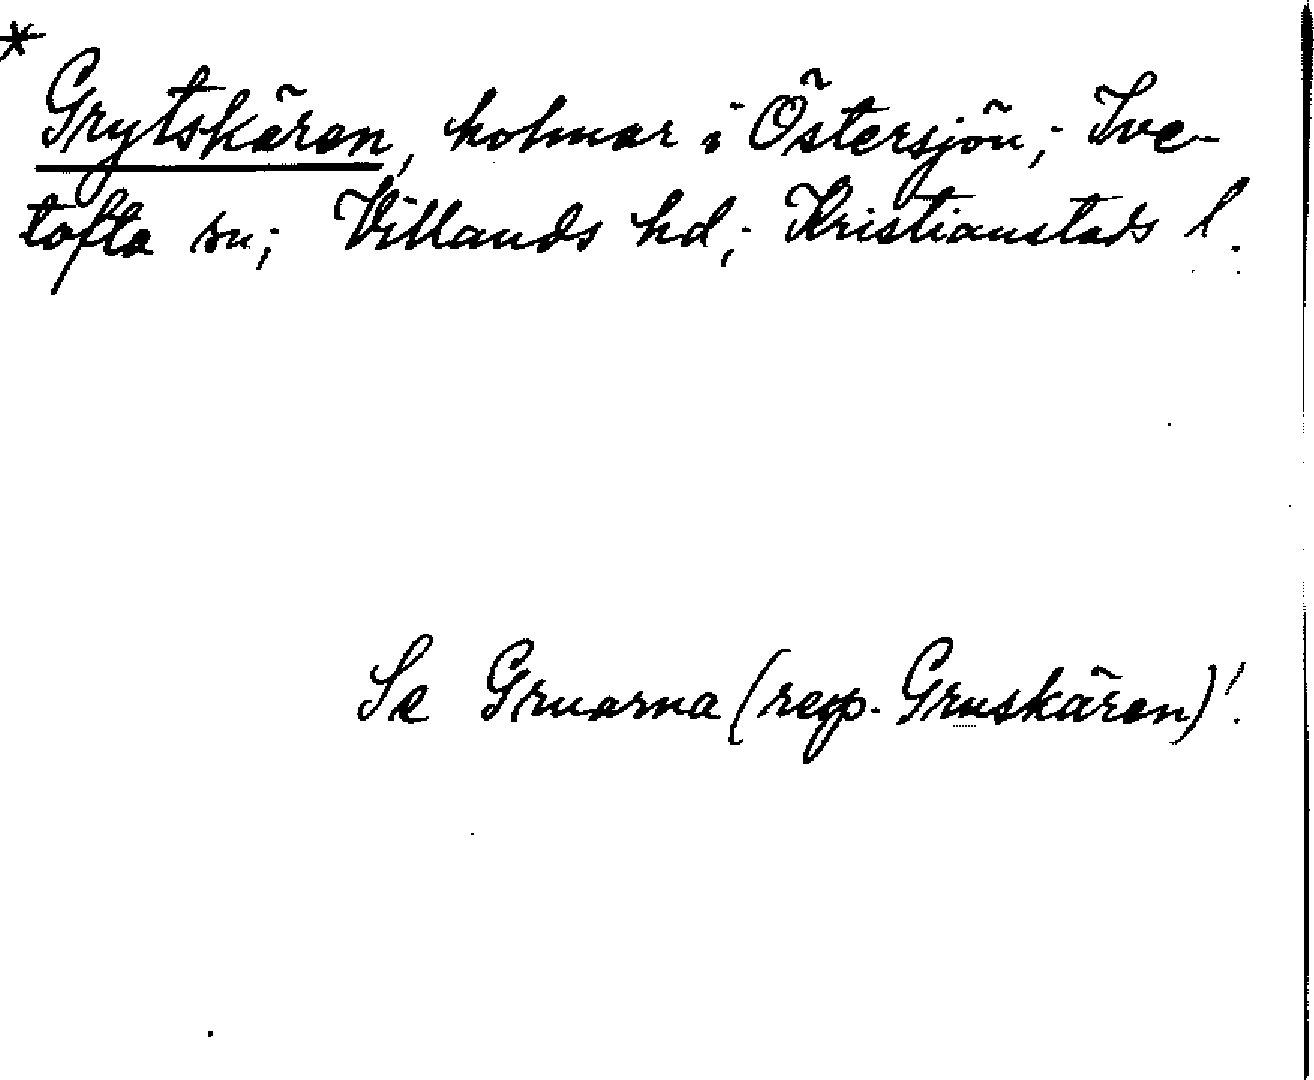 * Grytskären, holmar i Östersjön; Ive-
tofta sn; Villands hd; Kristianstads l.
Se Gruarna (resp. Gruskären)!